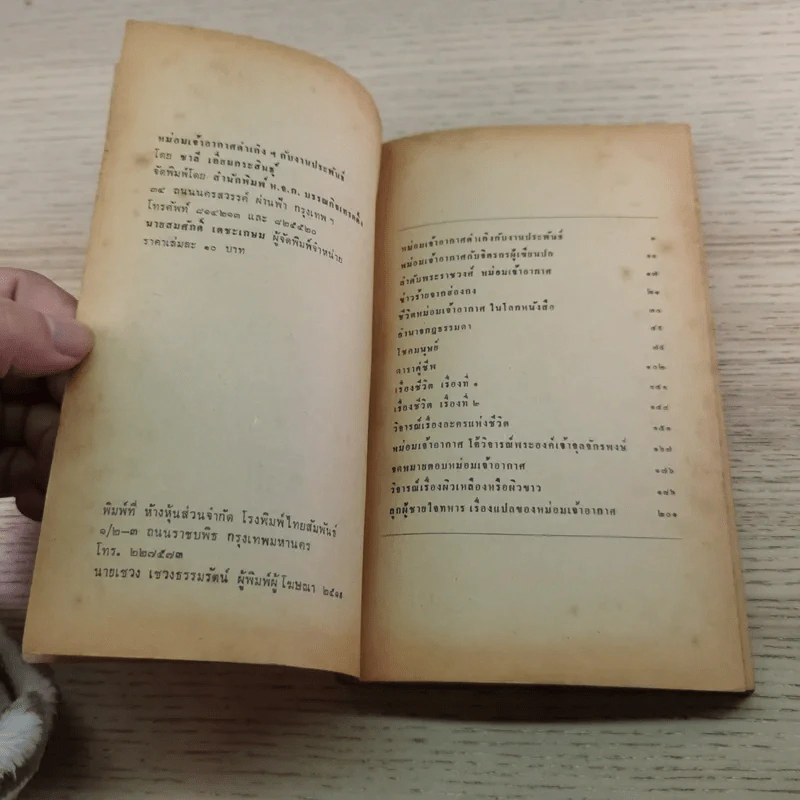 หม่อมเจ้าอากาศดำเกิง ฯ กับงานประพันธ์
โดย ชาลี เอี่ยมกระสินธุ์
จัดพิมพ์โดย สำนักพิมพ์ ห.จ.ก. บรรณกิจเทรดดิ้ง
๓๔ ถนนนครสวรรค์ ผ่านฟ้า กรุงเทพ ฯ
โทรศัพท์ ๘๑๔๒๑๓ และ ๘๒๕๕๒๐
นายสมศักดิ์ เตชะเกษม ผู้จัดพิมพ์จำหน่าย
ราคาเล่มละ ๑๐ บาท
พิมพ์ที่ ห้างหุ้นส่วนจำกัด โรงพิมพ์ไทยสัมพันธ์
๑/๒–๓ ถนนราชบพิธ กรุงเทพมหานคร
โทร. ๒๒๗๕๗๓
นายเชวง เชวงธรรมรัตน์ ผู้พิมพ์ผู้โฆษณา
หม่อมเจ้าอากาศดำเกิงกับงานประพันธ์ ๑
หม่อมเจ้าอากาศกับจิตรกรผู้เขียนปก ๑๑
ลำดับพระราชวงศ์ หม่อมเจ้าอากาศ ๑๗
ข่าวร้ายจากฮ่องกง ๒๑
ชีวิตหม่อมเจ้าอากาศ ในโลกหนังสือ ๓๔
อำนาจกฎธรรมดา ๔๕
โชคมนุษย์ ๗๕
ดาราคู่ชีพ ๑๐๒
เรื่องชีวิต เรื่องที่ ๑ ๑๔๑
เรื่องชีวิต เรื่องที่ ๒ ๑๔๔
วิจารณ์เรื่องละครแห่งชีวิต ๑๕๑
หม่อมเจ้าอากาศ โต้วิจารณ์พระองค์เจ้าจุลจักรพงษ์ ๑๖๗
จดหมายตอบหม่อมเจ้าอากาศ ๑๗๖
วิจารณ์เรื่องผิวเหลืองหรือผิวขาว
ลูกผู้ชายใจทหาร เรื่องแปลของหม่อมเจ้าอากาศ ๒๐๑